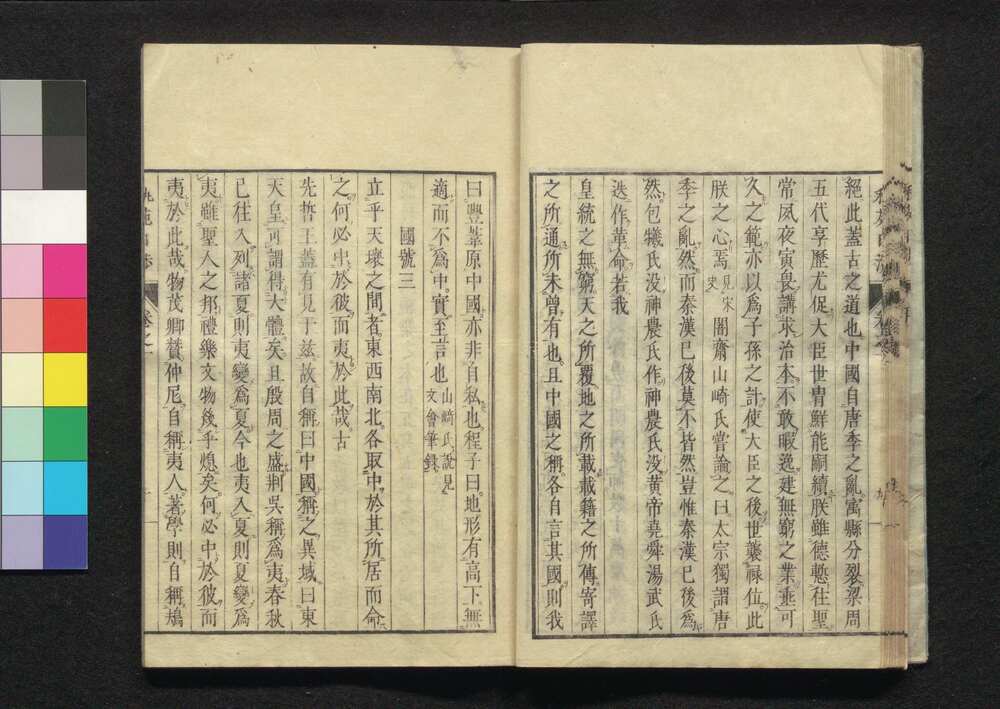 絕此蓋古之道也中國自唐季之亂寓縣分裂梁周
五代享歷尤促大臣世冑鮮能嗣續朕雖德慙往聖
常夙夜寅畏講求治本不敢暇逸建無窮之業垂可
久之範亦以爲子孫之計使大臣之後世襲祿位此
朕之心焉見宋史闇齋山崎氏嘗論之曰太宗獨謂唐
季之亂然而秦漢已後莫不皆然豈惟秦漢已後爲
然包犧氏没神農氏作神農氏没黃帝堯舜湯武氏
迭作革命若我
皇統之無窮天之所覆地之所載載籍之所傳寄譯
之所通所未曾有也且中國之稱各自言其國則我
曰豐葦原中國亦非自私也程子曰地形有高下無
適而不爲中實至言也山崎氏說見文會筆錄
國號三
立乎天壤之間者東西南北各取中於其所居而命
之何必中於彼而夷於此哉古
先哲王蓋有見于茲故自稱曰中國稱之異域曰東
天皇可謂得大體矣且殷周之盛荆吳稱爲夷春秋
已往入列諸夏則夷變爲夏今也夷入夏則夏變爲
夷雖聖人之邦禮樂文物幾乎熄矣何必中於彼而
夷於此哉物茂卿贊仲尼自稱夷人著學則自稱鴂
卷之一